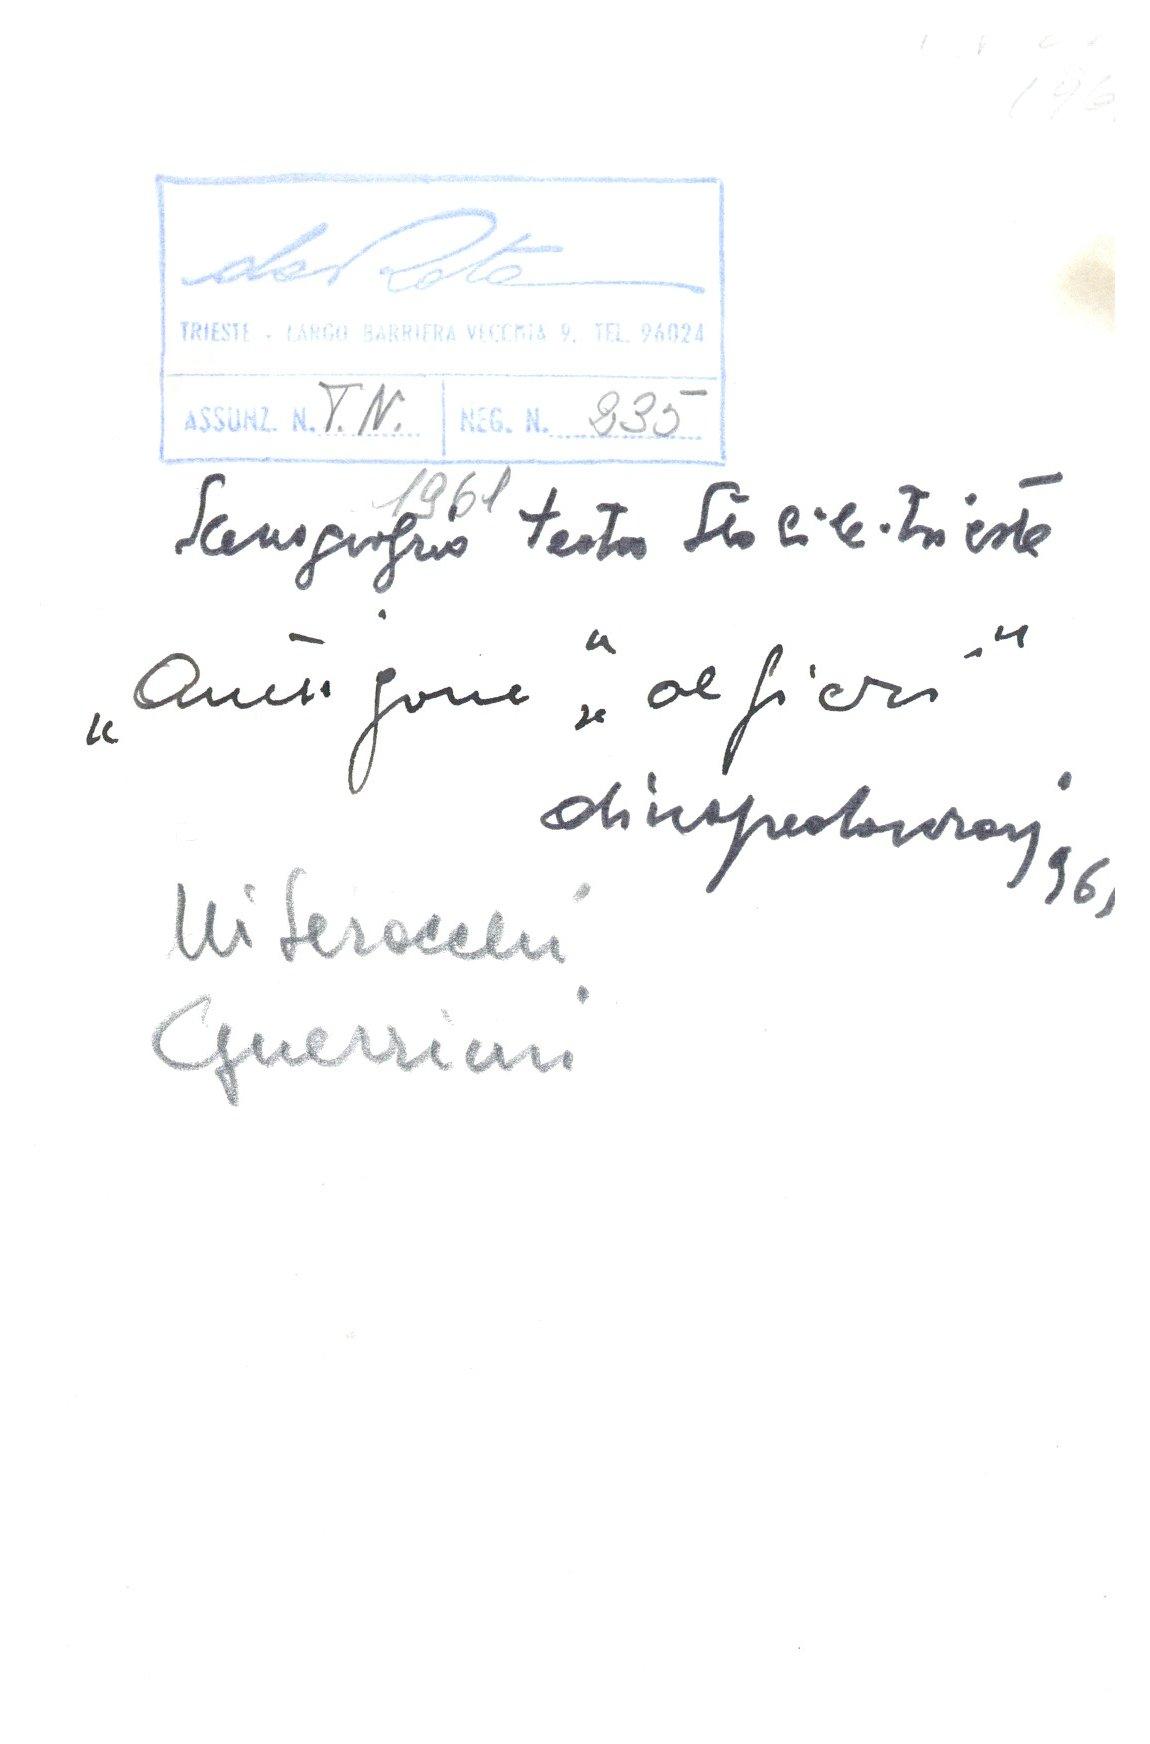 196
de Rota
TRIESTE - LARGO BARRIERA VECCHIA 9, TEL. 96024
ASSUNZ. N. T.N. NEG. N. 235
1961
Scenografia teatro Stabile. Trieste
„Antigone“ „alfieri“
dino predonzani 961
Miserocchi
Guerrieri